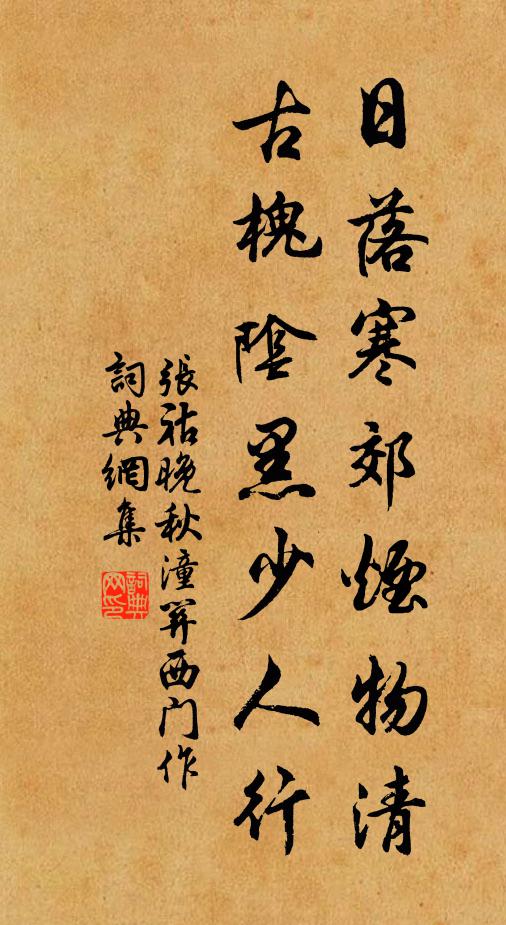 日落寒郊煙物清
古槐陰黑少人行
張祜晚秋潼關西門作
詞典網集
詞典网印